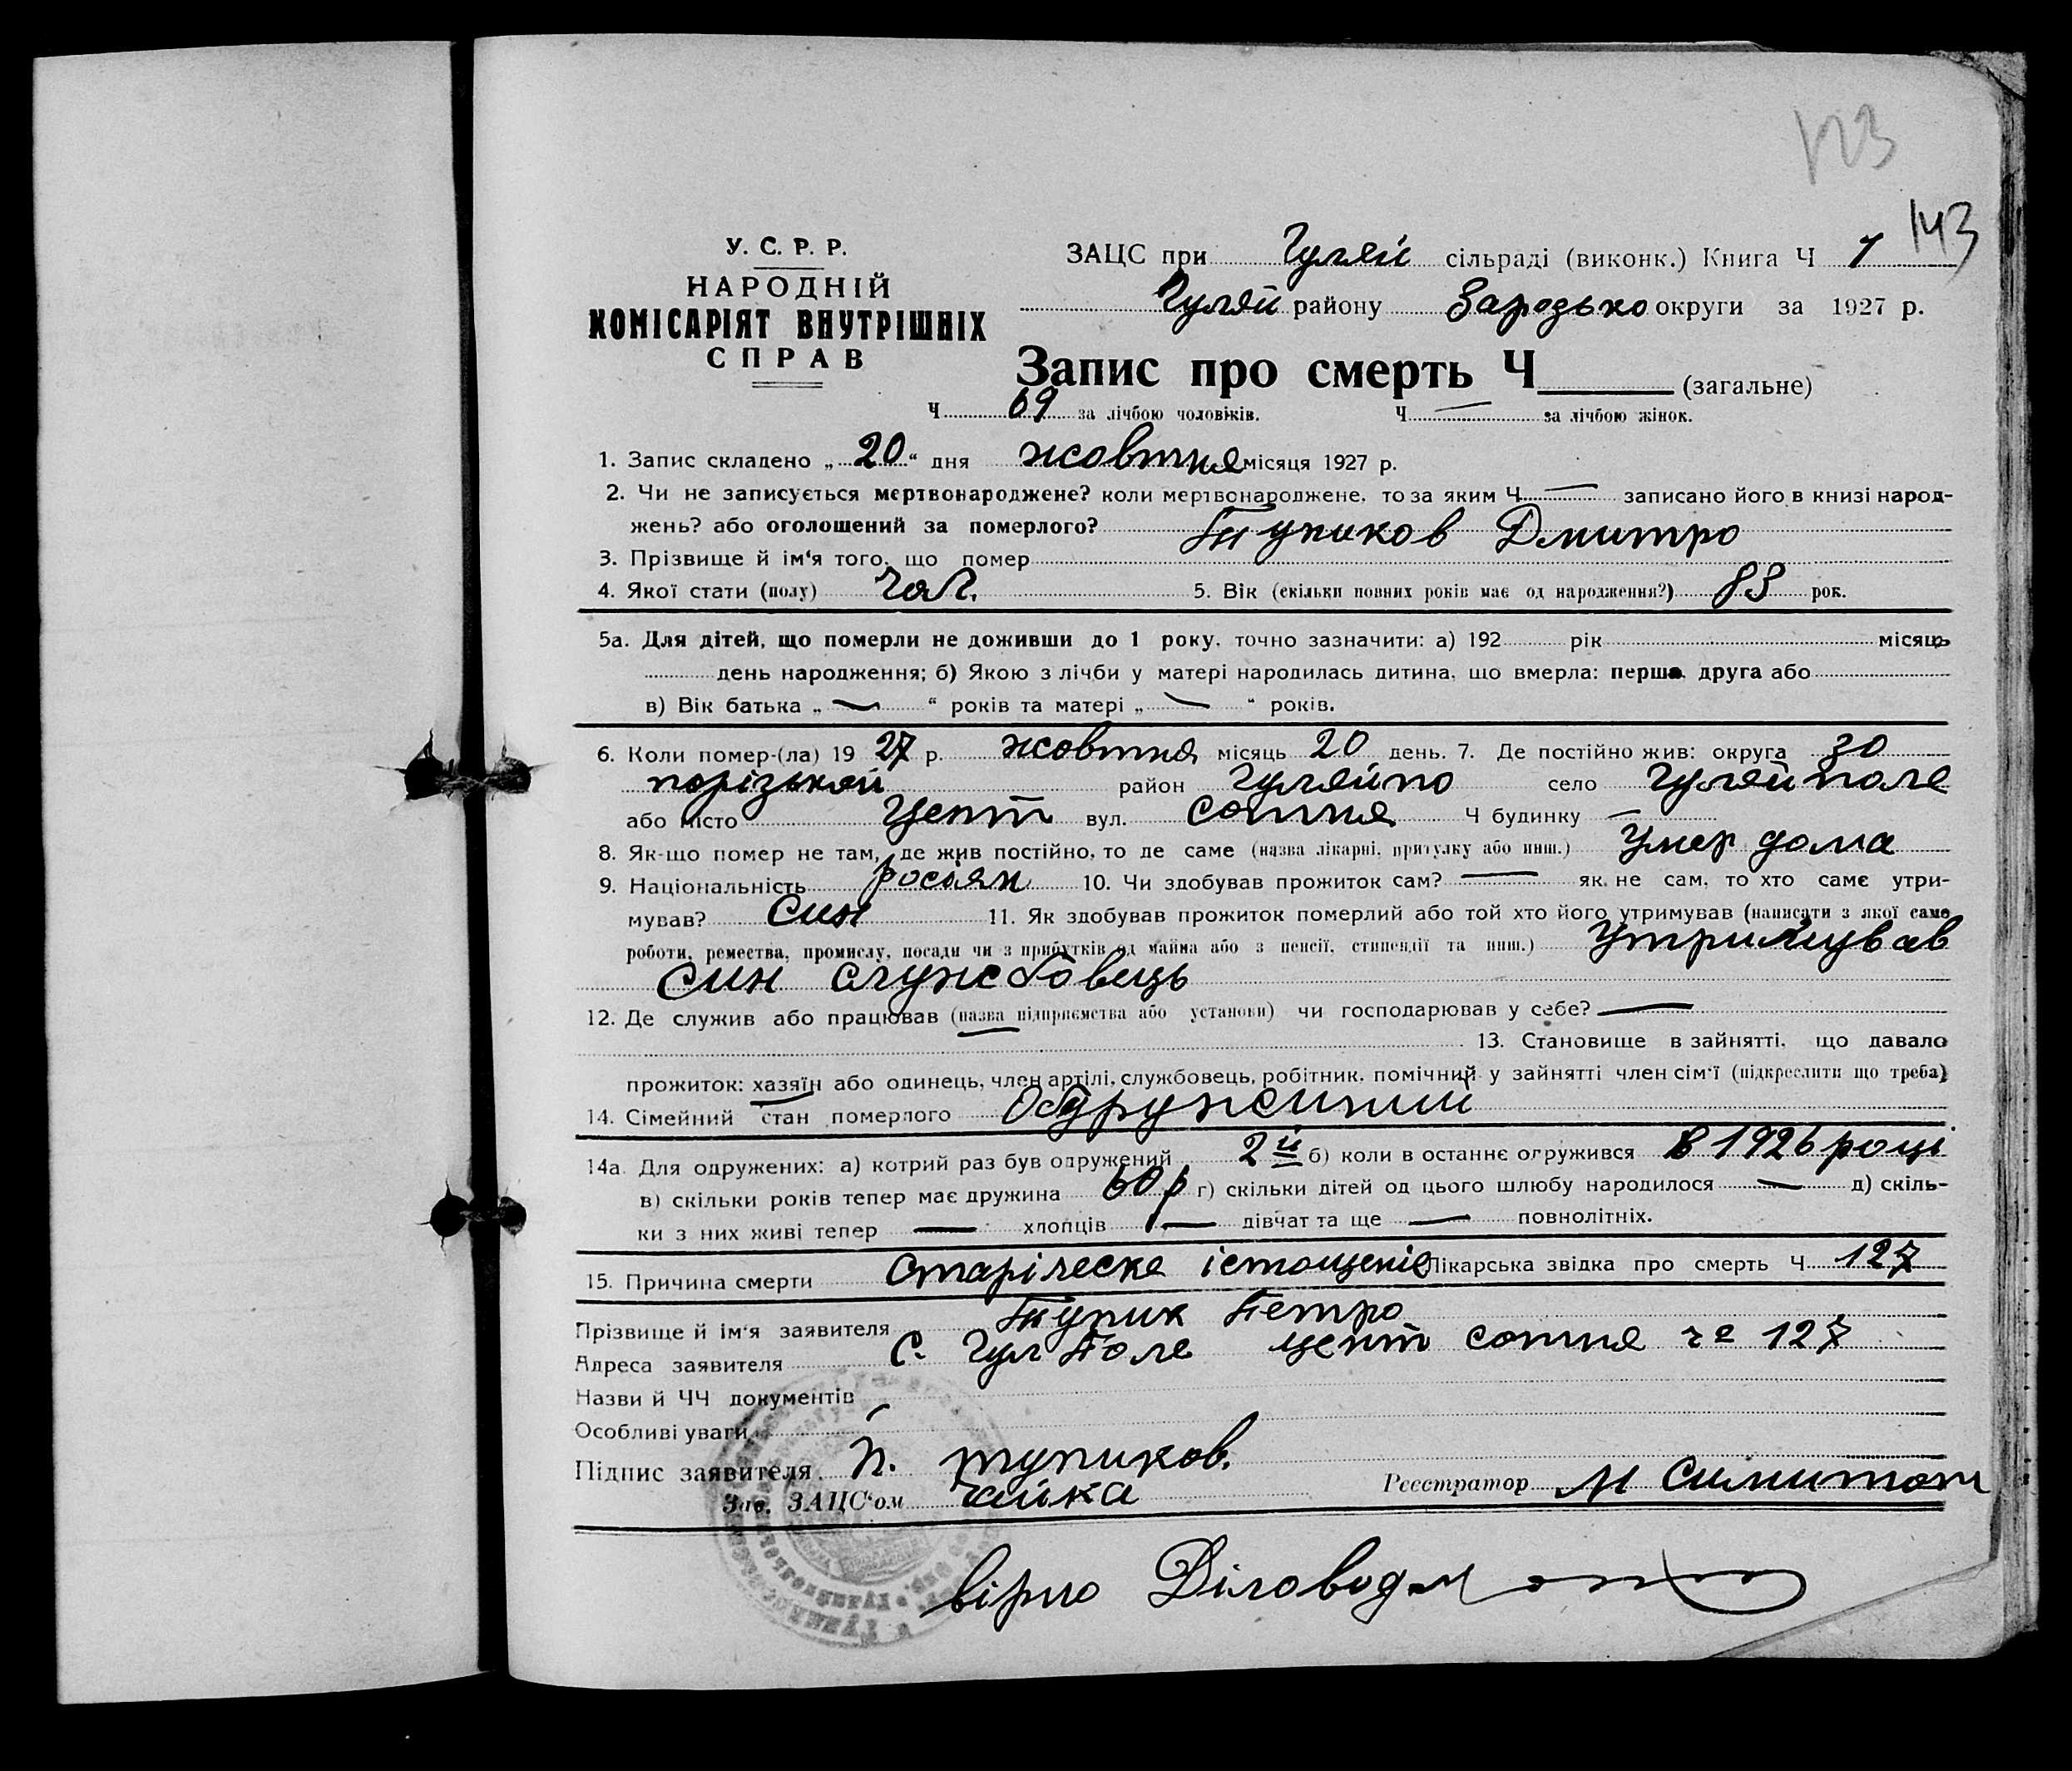 123
143
У. С. Р. Р.
НАРОДНІЙ
КОМІСАРІЯТ ВНУТРІШНІХ
СПРАВ
ЗАЦС при Гуляй сільраді (виконк.) Книга Ч 1
Гуляй району округи за 1927 р.
Запис про смерть Ч (загальне)
Ч 69 за лічбою чоловіків. Ч — за лічбою жінок.
1. Запис складено „ 20 “ дня жовтня місяця 1927 р.
2. Чи не записується мертвонароджене? коли мертвонароджене, то за яким Ч — записано його в книзі народ-
жень? або оголошений за померлого?
3. Прізвище й ім‘я того, що помер Тупиков Дмитро
4. Якої стати (полу) чол. 5. Вік (скільки повних років має од народження?) рок.
5а. Для дітей, що померли не доживши до 1 року, точно зазначити: а) 192 рік місяць
день народження; б) Якою з лічби у матері народилась дитина, що вмерла: перша, друга або
в) Вік батька „ — “ років та матері „ — “ років.
6. Коли помер-(ла) 19 27 р. жовтня місяць 20 день. 7. Де постійно жив: округа За
порізькой район Гуляйпо село Гуляйполе
або місто Цент вул. сотня Ч будинку —
8. Як-що помер не там, де жив постійно, то де саме (назва лікарні, притулку або инш.) Умер дома
9. Національність росіян 10. Чи здобував прожиток сам? — як не сам, то хто саме утри-
мував? Син 11. Як здобував прожиток померлий або той хто його утримував (написати з якої саме
роботи, ремества, промислу, посади чи з прибутків од майна або з пенсії, стипендії та инш.) Утримував
син службовець
12. Де служив або працював (назва підприємства або установи) чи господарював у себе? —
13. Становище в зайнятті, що давало
прожиток: хазяїн або одинець, член артілі, службовець, робітник, помічний у зайнятті член сім‘ї (підкреслити що треба)
14. Сімейний стан померлого
14а. Для одружених: а) котрий раз був одружений 2й б) коли в останнє огружився в 1926 році
в) скільки років тепер має дружина 60 р г) скільки дітей од цього шлюбу народилося — д) скіль-
ки з них живі тепер — хлопців — дівчат та ще — повнолітніх.
15. Причина смерти Старіческе істощеніє Лікарська звідка про смерть Ч 127
Прізвище й ім‘я заявителя Тупик Петро
Адреса заявителя С. Гул Поле цент сотня 127
Назви й ЧЧ документів
Особливі уваги
Підпис заявителя П. тупиков.
Зав. ЗАЦС‘ом Чайка Реєстратор М
вірно Діловод